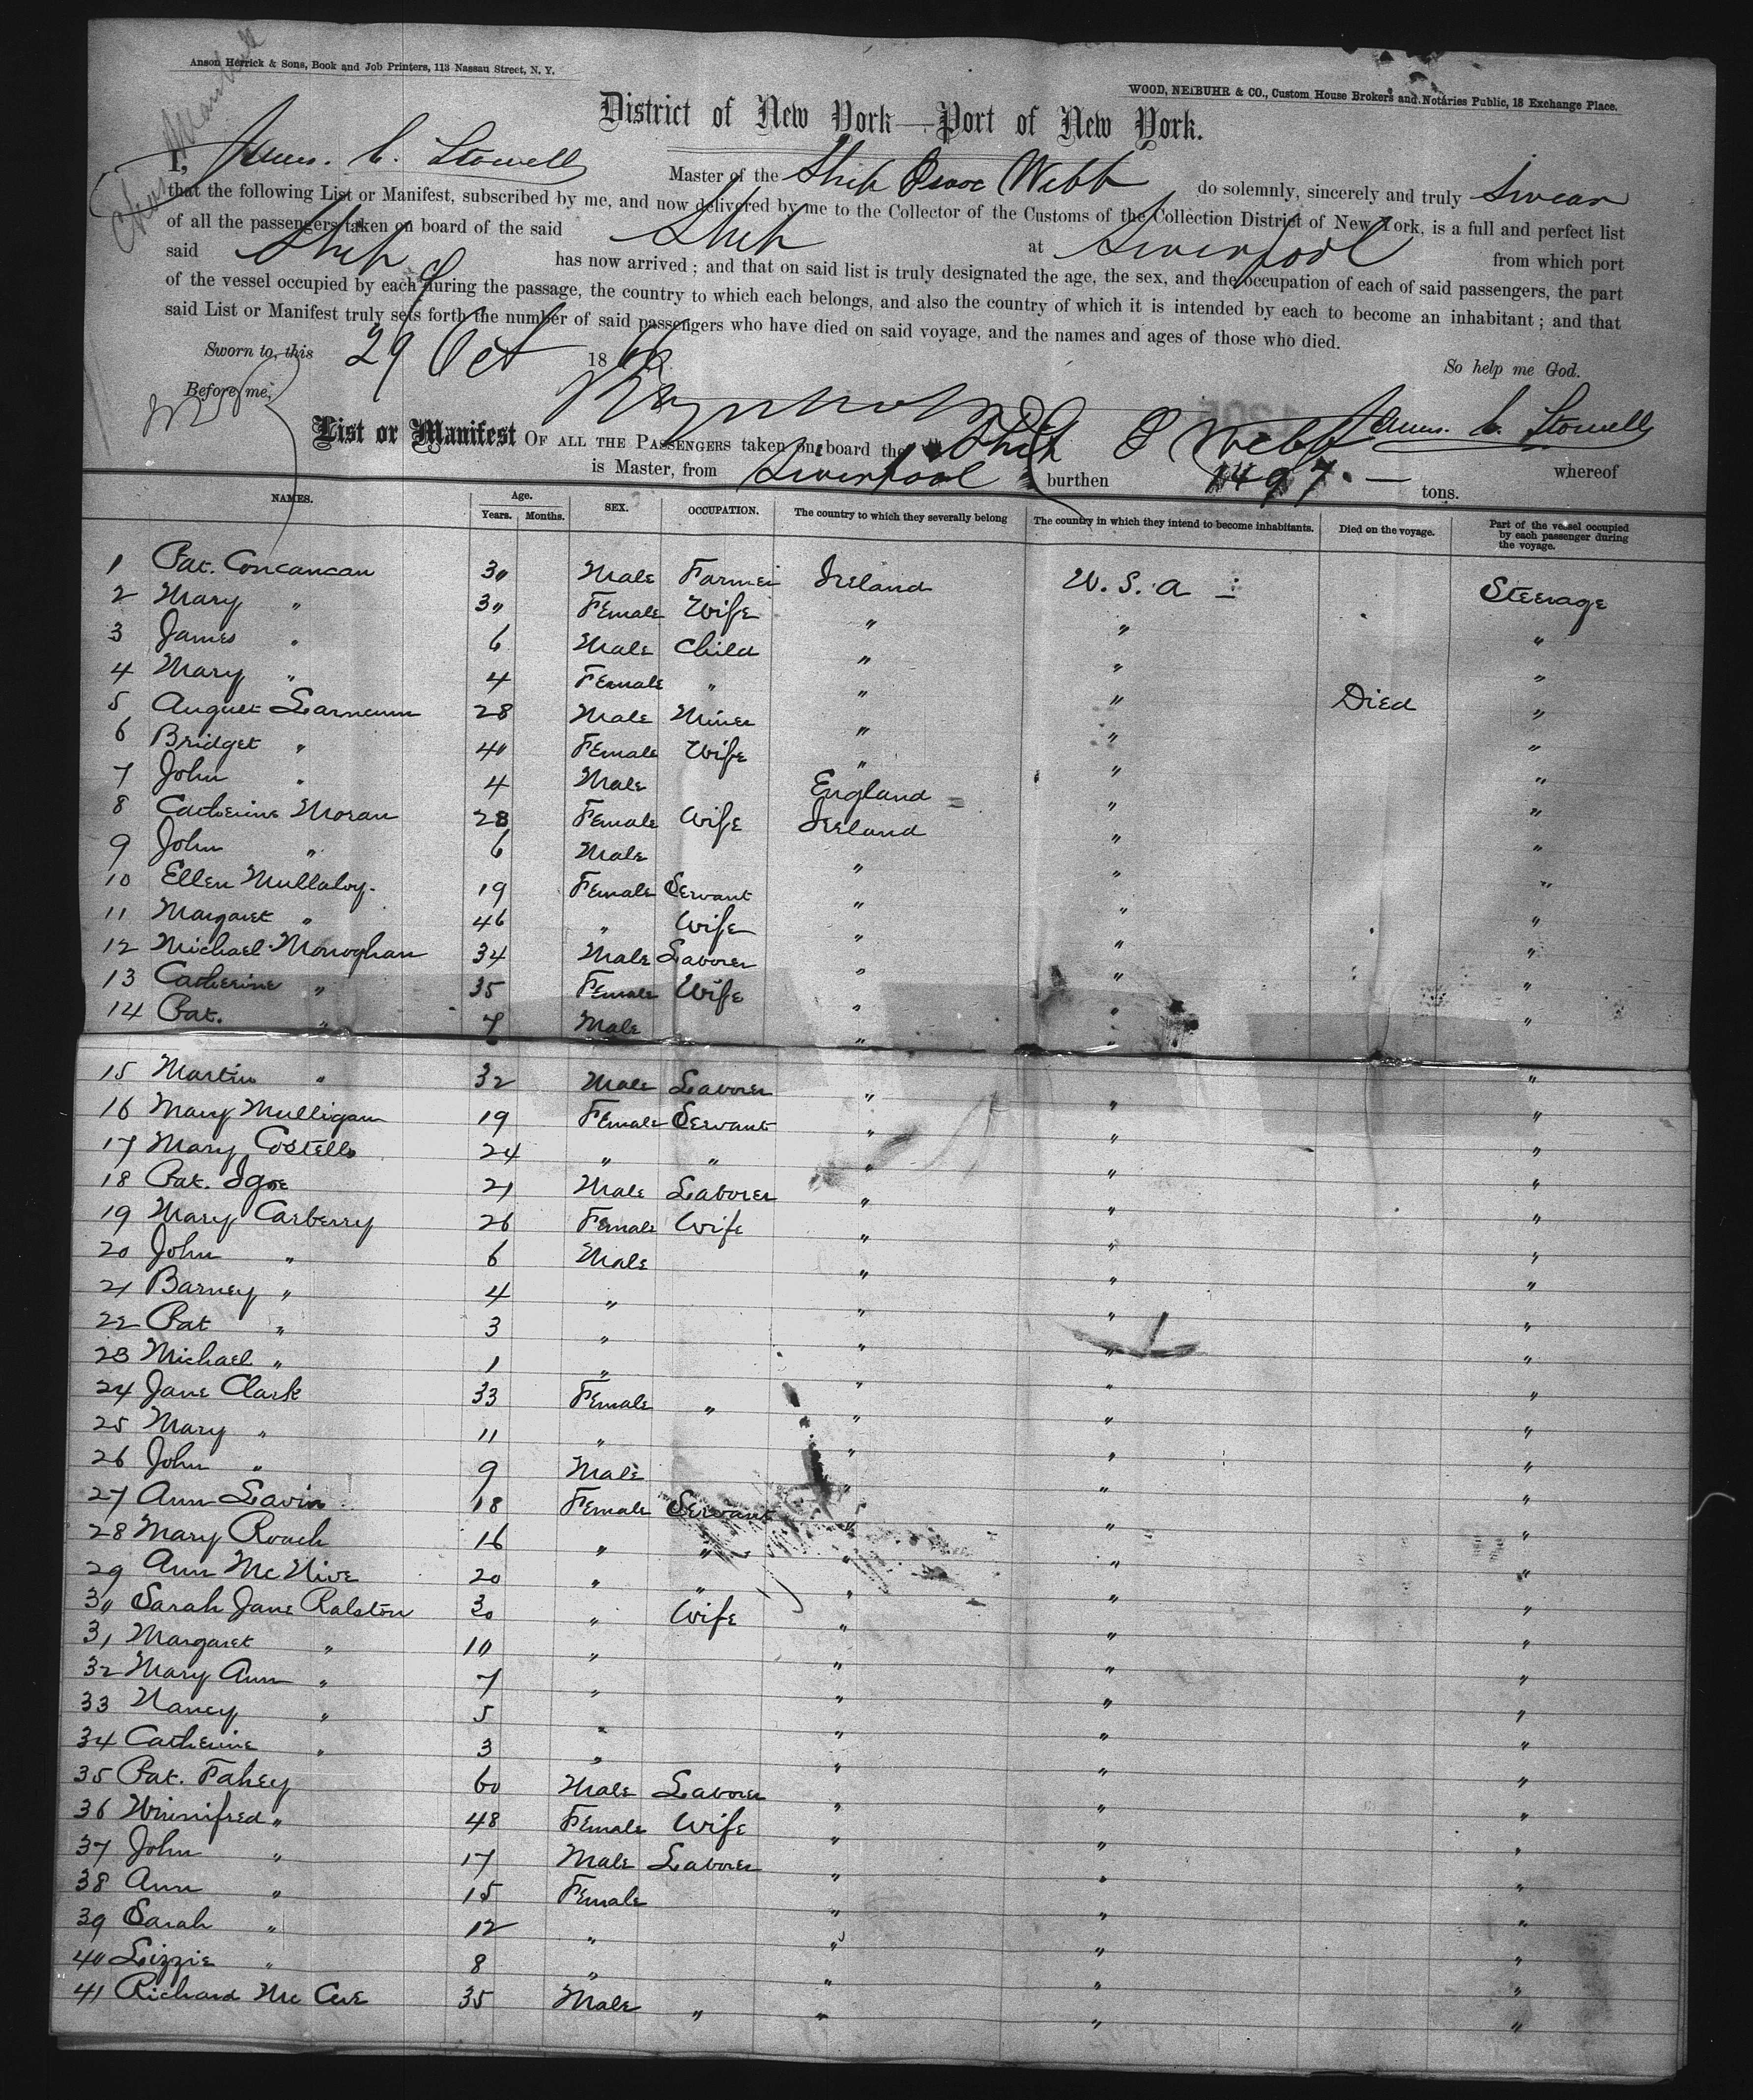 Anson Herrick & Sons, Book and Job Printers, 113 Nassau Street, N. Y.
WOOD, NEIBUHR & CO., Custom House Brokers and Notaries Public, 18 Exchange Place.
District of New York—Port of New York.
I, C. Stowell Master of the Ship Isaac Webb do solemnly, sincerely and truly swear
that the following List or Manifest, subscribed by me, and now delivered by me to the Collector of the Customs of the Collection District of New York, is a full and perfect list
of all the passengers taken on board of the said Ship at Liverpool from which port
said Ship has now arrived; and that on said list is truly designated the age, the sex, and the occupation of each of said passengers, the part
of the vessel occupied by each during the passage, the country to which each belongs, and also the country of which it is intended by each to become an inhabitant; and that
said List or Manifest truly sets forth the number of said passengers who have died on said voyage, and the names and ages of those who died.
Sworn to, this 29 Oct 18 So help me God.
Before me, C. Stowell
List or Manifest OF ALL THE PASSENGERS taken on board the Ship I Webb whereof
is Master, from Liverpool burthen 1497.— tons.
NAMES. Age. Years. Months. SEX. OCCUPATION. The country to which they severally belong The country in which they intend to become inhabitants. Died on the voyage. Part of the vessel occupied by each passenger during the voyage.
1 Pat. Concancan 30 Male Farmer Ireland U. S. A Steerage
2 Mary " 30 Female Wife " " "
3 James " 6 Male Child " " "
4 Mary " 4 Female " " " Died "
5 August 28 Male Miner " " "
6 Bridget " 40 Female Wife " " "
7 John " 4 Male England " "
8 Catherine Moran 28 Female Wife Ireland " "
9 John " 6 Male " " "
10 Ellen Mullaloy. 19 Female Servant " " "
11 Margaret " 46 " Wife " " "
12 Michael Monoghan 34 Male Laborer " " "
13 Catherine " 35 Female Wife " " "
14 Pat. " 7 Male " " "
15 Martin " 32 Male Laborer " " "
16 Mary Mulligan 19 Female Servant " " "
17 Mary Costello 24 " " " " "
18 Pat. Igoe 21 Male Laborer " " "
19 Mary Carberry 26 Female Wife " " "
20 John " 6 Male " " "
21 Barney " 4 " " " "
22 Pat " 3 " " " "
23 Michael " 1 " " " "
24 Jane Clark 33 Female " " " "
25 Mary " 11 " " " "
26 John " 9 Male " " "
27 Ann Lavin 18 Female Servant " " "
28 Mary Roach 16 " " " " "
29 Ann McNive 20 " " " " "
30 Sarah Jane Ralston 30 " Wife " " "
31 Margaret " 10 " " " "
32 Mary Ann " 7 " " " "
33 Nancy " 5 " " " "
34 Catherine " 3 " " " "
35 Pat. Fahey 60 Male Laborer " " "
36 Winnifred " 48 Female Wife " " "
37 John " 17 Male Laborer " " "
38 Ann " 15 Female " " "
39 Sarah " 12 " " " "
40 Lizzie " 8 " " " "
41 Richard Mc Cue 35 Male " " " "